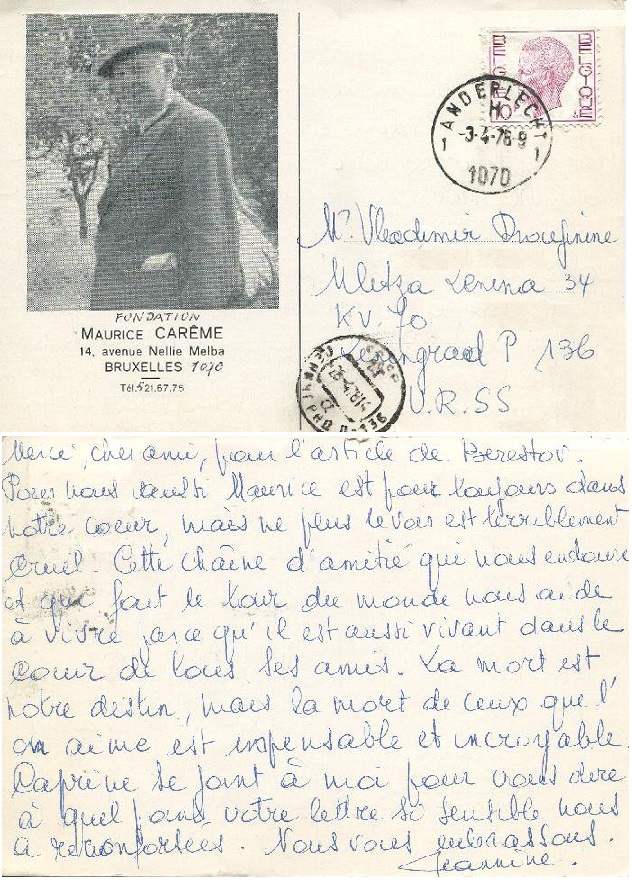 FONDATION
MAURICE CARÊME
14, avenue Nellie Melba
BRUXELLES 1070
Tél. 521.67.75
BELGIQUE
BELGIE
10
ANDERLECHT
H
-3-4-78-9
1 1
1070
Mr Vladimir
Ulitza Lenina 34
KV. 70
Leningrad P 136
U.R.SS
Merci, cher ami, pour l'article de Berestov.
Pour nous aussi Maurice est pour toujours dans
notre coeur, mais ne plus le voir est terriblement
cruel. Cette chaîne d'amitié qui nous entoure
et qui fait le tour du monde nous aide
à vivre parce qu'il est aussi vivant dans le
coeur de tous ses amis. La mort est
notre destin, mais la mort de ceux que l'
on aime est impensable et incroyable.
Caprine se joint à moi pour vous dire
à quel point votre lettre si sensible nous
a réconfortées. Nous vous embrassons.
Jeannine.